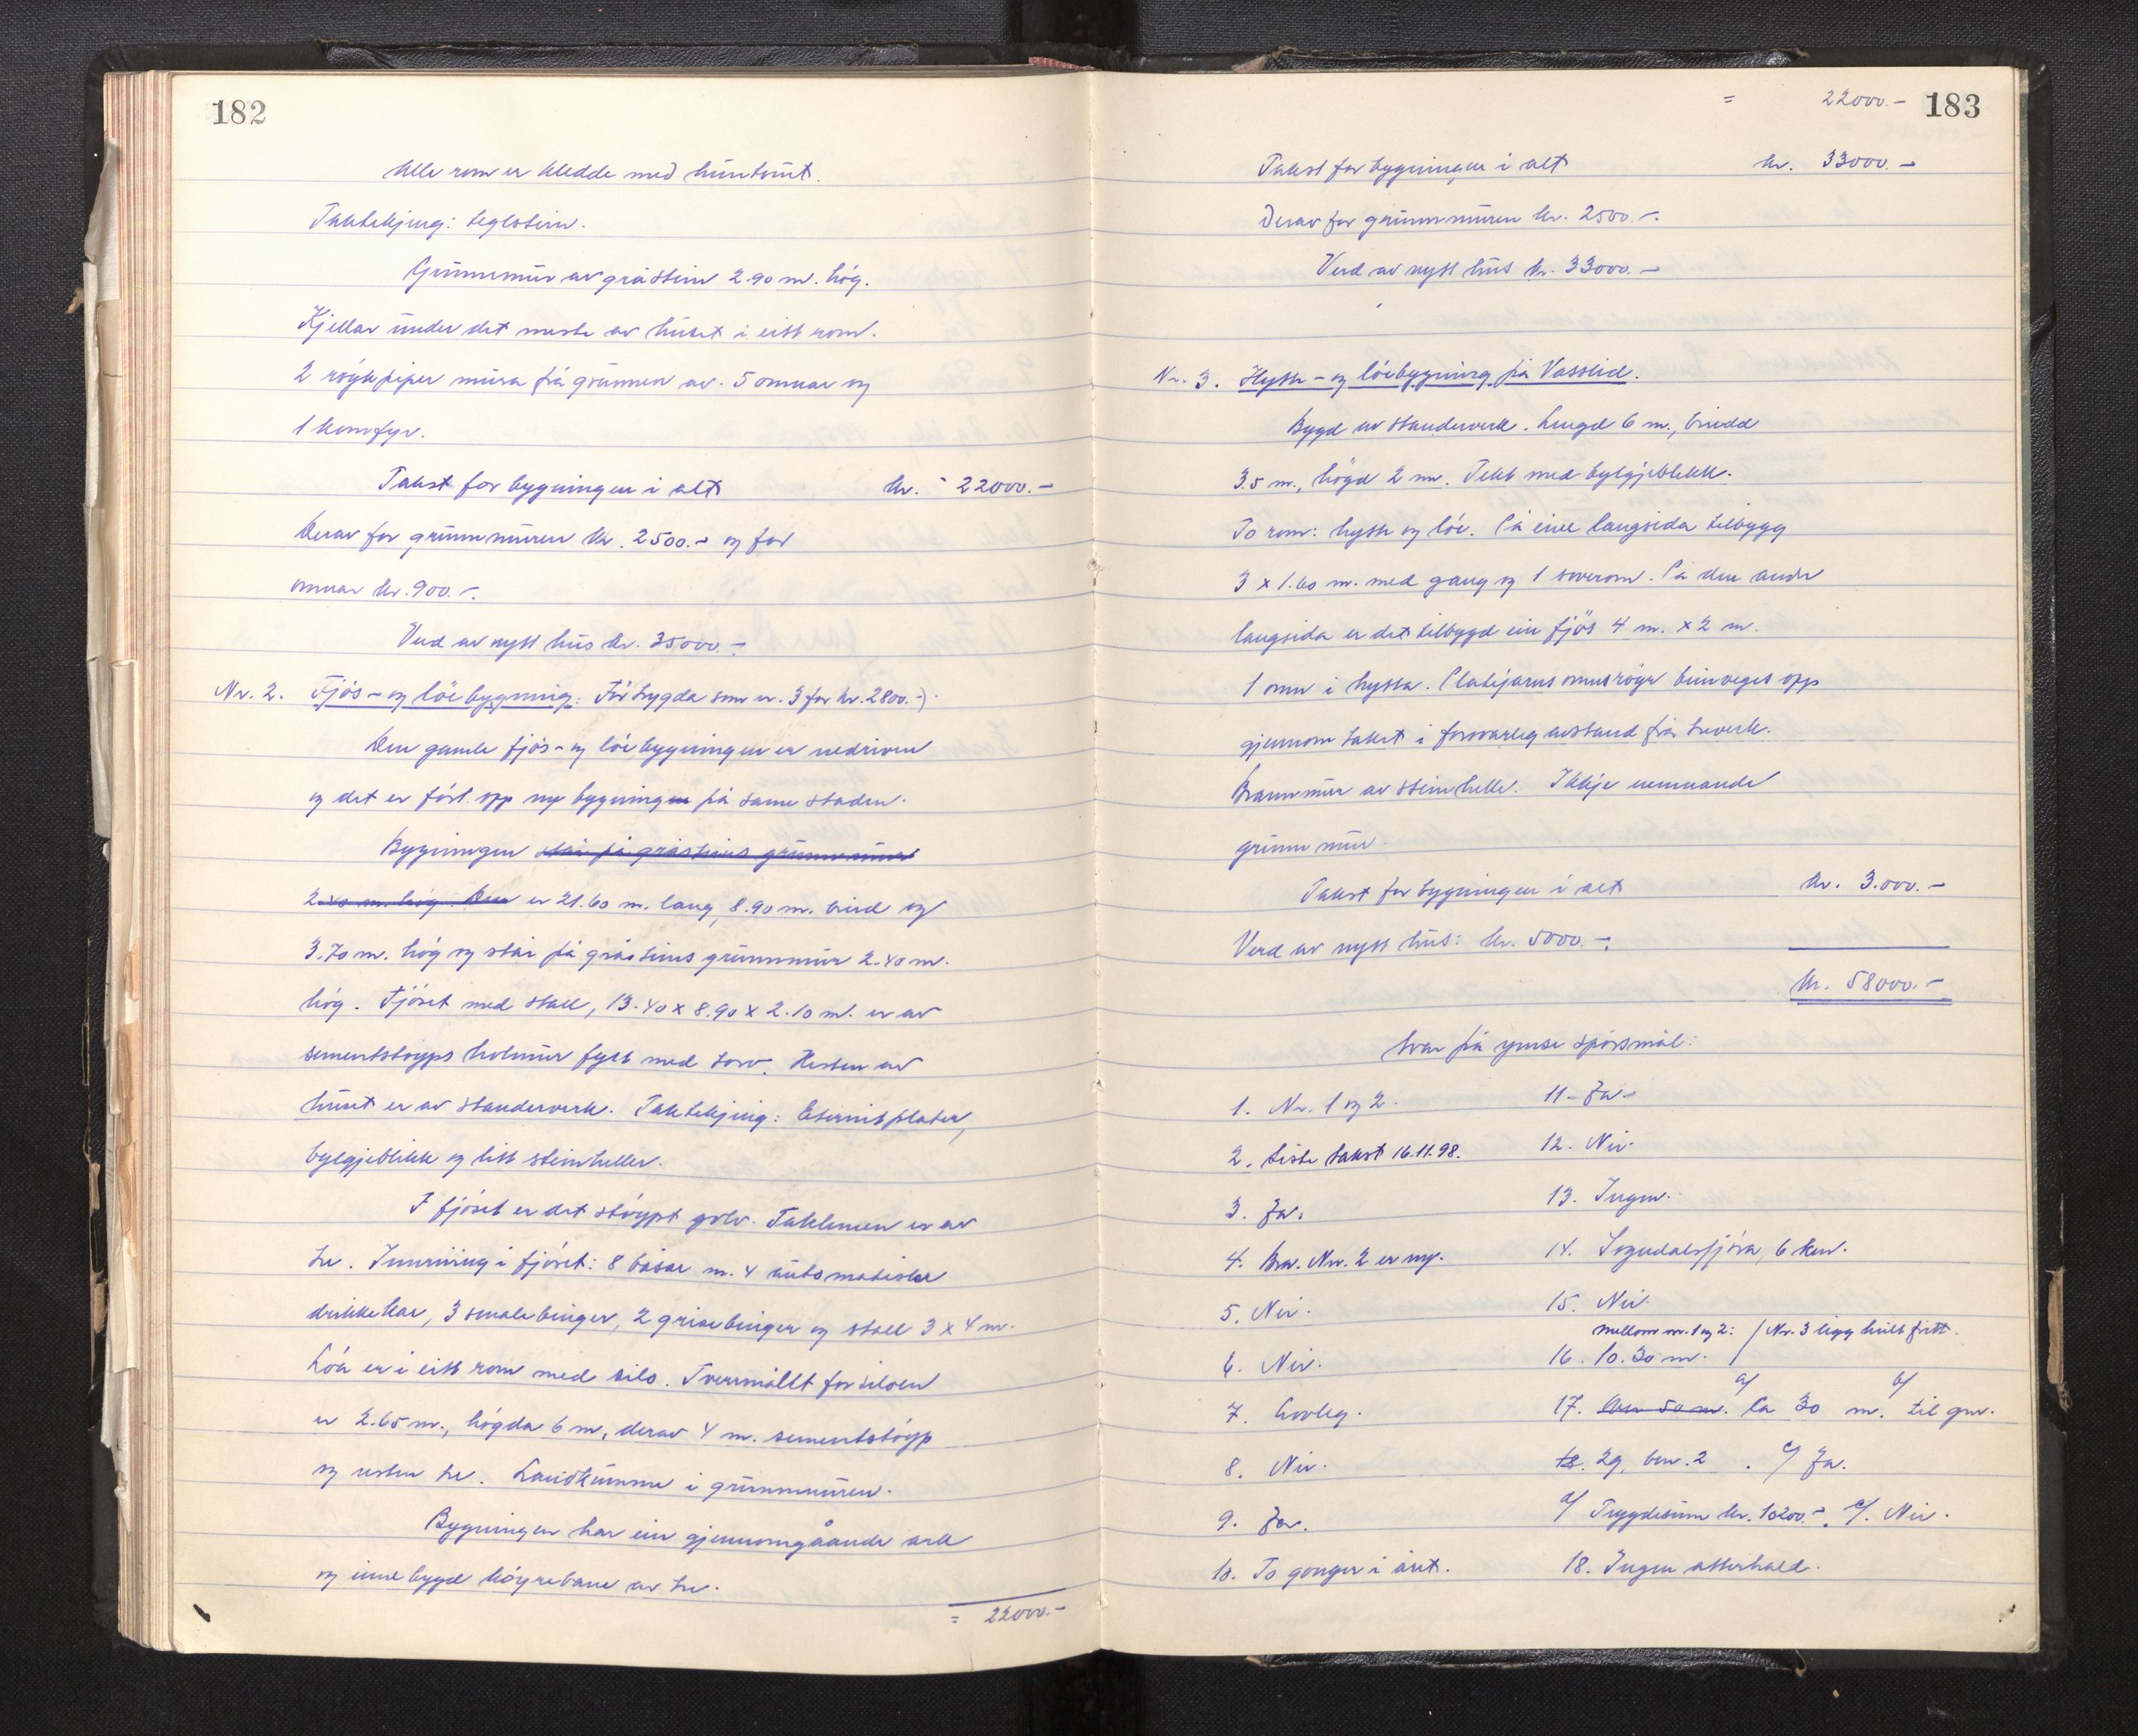 182
Alle rom er kledde med huntonit.
Taktekjing: teglstein.
Grunnmur av gråstein 2.90 m. høg.
Kjellar under det meste av huset i eitt rom.
2 røykpiper mura frå grunnen av. 5 omnar og
1 komfyr.
Takst for bygningen i alt kr. 22000.-
Derav for grunnmuren kr. 2500.- og for
omnar kr. 900.-.
Verd av nytt hus kr. 35000.-
Nr. 2. Fjøs- og løebygning. Før trygda som nr. 3 for kr. 2800.-).
Den gamle fjøs- og løebygningen er nedriven
og det er ført opp ny bygning på same staden.
Bygningen står på gråsteins grunnmur
2.40 m. høg. Den er 21.60 m. lang, 8.90 m. breid og
3.70 m. høg og står på gråsteins grunnmur 2.40 m.
høg. Fjøset med stall, 13.40 x 8.90 x 2.10 m. er av
sementstøyps holmur fyllt med torv. Resten av
huset er av standerverk. Taktekjing: Eternitplater,
bylgjeblikk og litt steinheller.
I fjøset er det støypt golv. Taklemen er av
tre. Innreiing i fjøset: 8 båsar m. 4 automatiske
drikkekar, 3 smalebinger, 2 grisebinger og stall 3 x 4 m.
Løa er i eitt rom med silo. Tverrmålet for siloen
er 2.65 m., høgda 6 m, derav 4 m. sementstøyp
og resten tre. Landkumme i grunnmuren.
Bygningen har ein gjennomgåande ark
og innebygd køyrebane av tre.
= 22000.-
= 22000.- 183
Takst for bygningen i alt kr. 33000.-
Derav for grunnmuren kr. 2500.-.
Verd av nytt hus kr. 33000.-
Nr. 3. Hytte- og løebygning på Vasslid.
Bygd av standerverk. Lengd 6 m., breidd
3.5 m., høgd 2 m. Tekt med bylgjeblekk.
To rom: hytte og løe. På eine langsida tilbygg
3 x 1.60 m. med gang og 1 soverom. På den andre
langsida er det tilbygd ein fjøs 4 m. x 2 m.
1 omn i hytta. Platejarns omnsrøyr beinveges opp
gjennom taket i forsvarleg avstand frå treverk.
Brannmur av steinhelle. Ikkje nemnande
grunnmur.
Takst for bygningen i alt kr. 3.000.-
Verd av nytt hus: kr. 5000.-.
kr. 58000.-
Svar på ymse spørsmål:
1. Nr. 1 og 2.
2. Siste takst 16.11.98.
3. Ja.
4. Bra. Nr. 2 er ny.
5. Nei.
6. Nei.
7. Lovleg.
8. Nei.
9. Ja.
10. To gonger i året.
11. Ja.
12. Nei.
13. Ingen.
14. Sogndalsfjøra, 6 km.
15. Nei.
mellom nr. 1 og 2: / Nr. 3 ligg heilt fritt.
16. 10.30 m.
17. Over 50 m. a/ Ca 30 m. b/ til gnr.
18. 29, bnr. 2. c/ Ja.
d/ Trygdesum kr. 10200.-. e/. Nei.
18. Ingen atterhald.